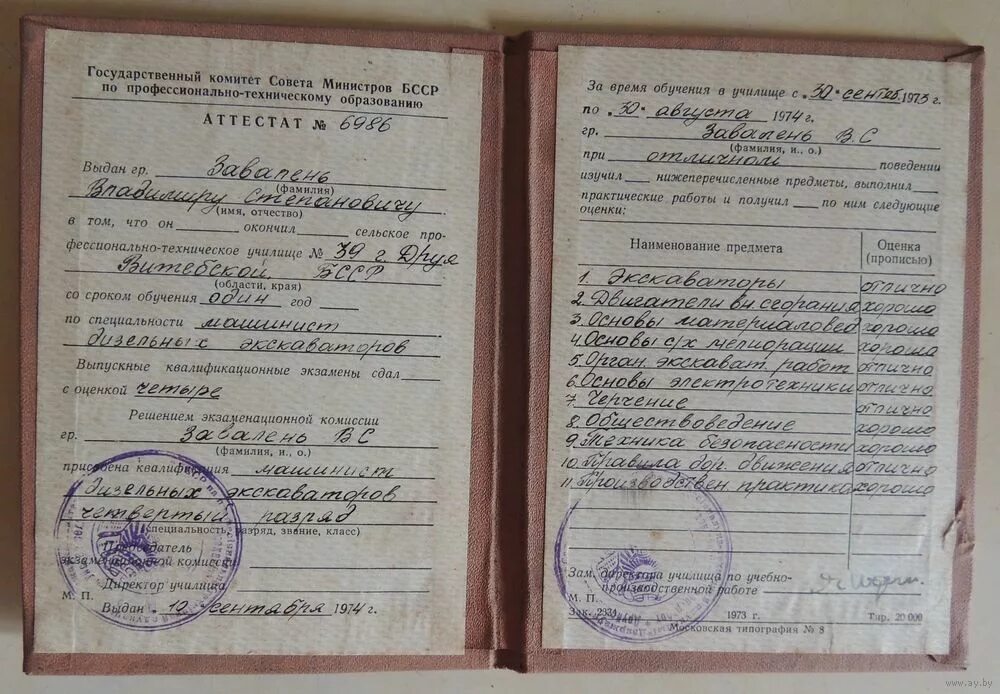 Государственный комитет Совета Министров БССР
по профессионально-техническому образованию
АТТЕСТАТ № 6986
Выдан гр. Завалень
(фамилия)
Владимиру Степановичу
(имя, отчество)
в том, что он окончил сельское про-
фессионально-техническое училище № 39 г. Друя
Витебской БССР
(области, края)
со сроком обучения один год
по специальности машинист
дизельных экскаваторов
Выпускные квалификационные экзамены сдал
с оценкой четыре
Решением экзаменационной комиссии
гр. Завалень ВС
(фамилия, и., о.)
присвоена квалификация машинист
дизельных экскаваторов
четвертый разряд
(специальность, разряд, звание, класс)
Председатель
экзаменационной комиссии
Директор училища
М. П.
Выдан 10 сентября 1974 г.
За время обучения в училище с „30" сентяб. 1973 г.
по „30" августа 1974 г.
гр. Завалень В.С
(фамилия, и., о.)
при отличном поведении
изучил нижеперечисленные предметы, выполнил
практические работы и получил по ним следующие
оценки:
Наименование предмета Оценка
(прописью)
1. Экскаваторы отлично
2. Двигатели вн сгорания хорошо
3. Основы материаловед хорошо
4. Основы с/х мелиорации хорошо
5. Орган. экскават. работ отлично
6. Основы электротехники отлично
7. Черчение отлично
8. Обществоведение хорошо
9. Техника безопасности хорошо
10. Правила дор. движения отлично
11. Производствен практика хорошо
Зам. директора училища по учебно-
производственной работе
М. П.
Зак. 2834 1973 г. Тир. 20 000
Московская типография № 8
www.ay.by